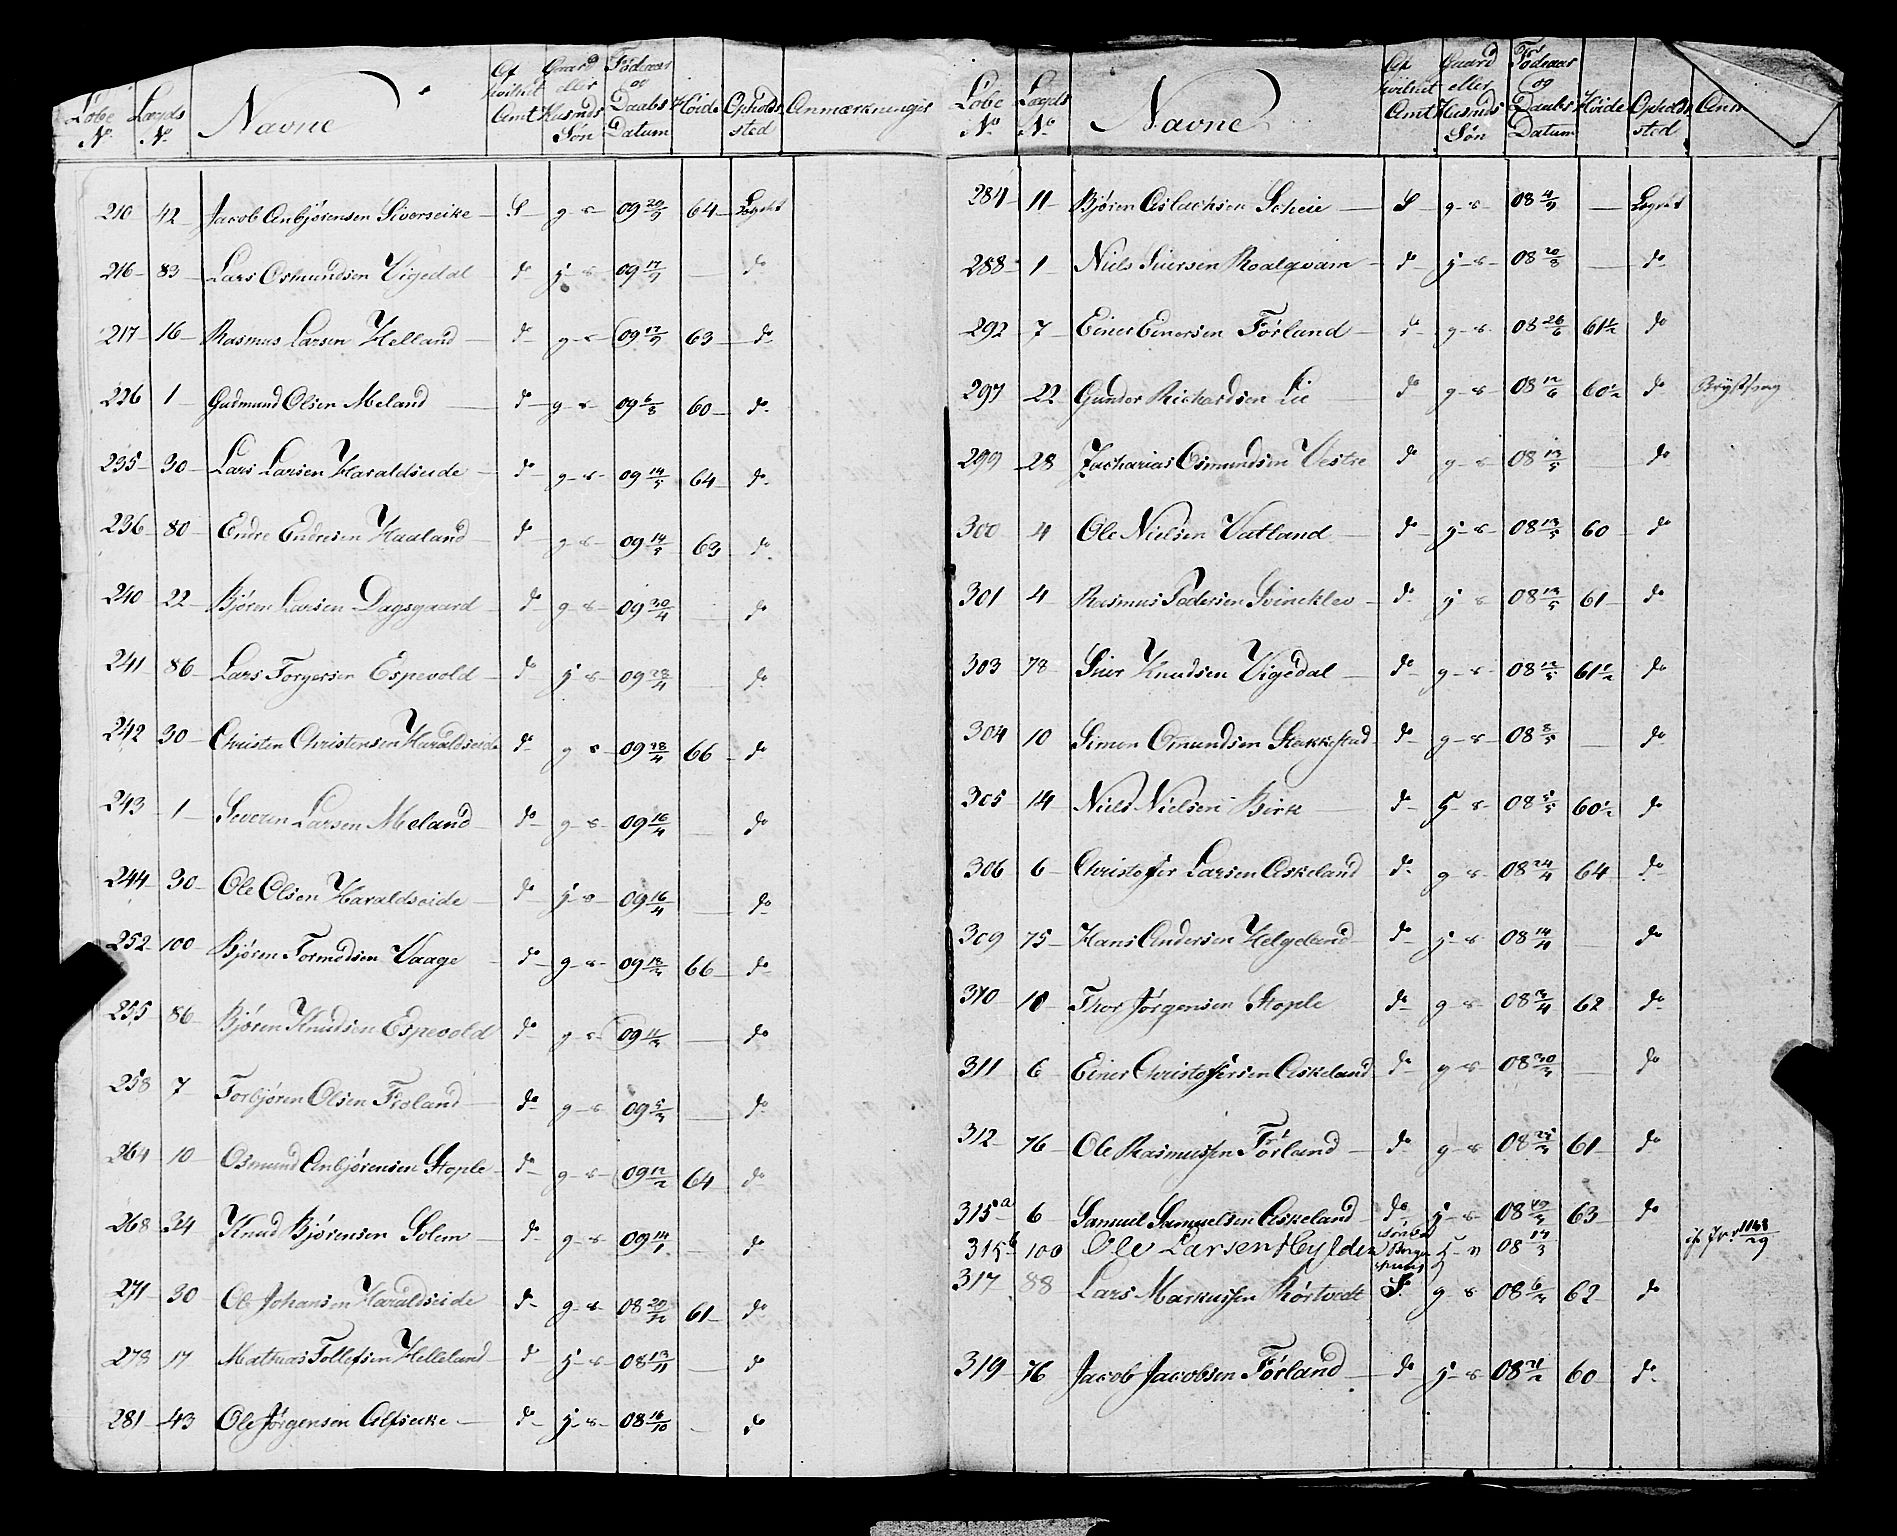 Løbe No. Lægds No. Navne Af hvilket Amt Gaard eller Husmds Søn Fødeaar og Daabs Datum Høide Opholds sted Anmærkninger
210 42 Jacob Anbjørensen Siverseike S g s 09 20/9 64 Lægdet
216 83 Lars Osmundsen Vigedal do j s 09 17/9 — do
217 16 Rasmus Larsen Helland do g s 09 17/9 63 do
226 1 Gudmund Olsen Meland do g s 09 6/8 60 do
235 30 Lars Larsen Haraldseide do g s 09 14/5 64 do
236 80 Endre Endresen Haaland do g s 09 14/5 63 do
240 22 Bjøren Larsen Dagsgaard do g s 09 30/4 — do
241 86 Lars Torgersen Espevold do j s 09 23/4 — do
242 30 Christen Christensen Haraldseide do g s 09 /4 66 do
243 1 Severin Larsen Meland do g s 09 16/4 — do
244 30 Ole Olsen Haraldseide do j s 09 16/4 — do
252 100 Bjøren Tormodsen Vaage do g s 09 66 do
255 86 Bjøren Knudsen Espevold do g s 09 — do
258 7 Torbjøren Olsen Frøland do g s 09 — do
264 10 Osmund Anbjørensen Stople do g s 09 12/2 64 do
268 34 Knud Bjørensen Solem do g s 09 14/1 do
271 30 Ole Johansen Haraldseide do g s 08 20/12 61 do
278 17 Mathias Tollefsen Helleland do j s 08 13/11 — do
281 43 Ole Jørgensen Alfseike do j s 08 16/10 — do
Løbe No. Lægds No. Navne Af hvilket Amt Gaard eller Husmds Søn Fødeaar og Daabs Datum Høide Opholds sted Anm
284 11 Bjøren Aslachsen Scheie S g s 08 4/9 — Lægdet
288 1 Niels Siursen Roalqvam do j s 08 20/8 — do
292 7 Einer Einersen Førland do g s 08 26/6 61½ do
297 22 Gunder Richardsen Lie do g s 08 12/6 60½ do Brystsvag
299 28 Zacharias Osmundsen Vestre do g s 08 13/5 do
300 4 Ole Nielsen Vatland do j s 08 13/5 60 do
301 4 Rasmus Pedersen Svinelles do j s 08 13/5 61 do
303 78 Siur Knudsen Vigedal do g s 08 12/5 61½ do
304 10 Simon Omundsen Stakkestad do g s 08 8/5 — do
305 14 Niels Nielsen Birk do j s 08 5/5 60½ do
306 6 Christoffer Larsen Askeland do g s 08 24/4 64 do
309 75 Hans Andersen Helgeland do j s 08 14/4 do
310 10 Thor Jørgensen Stople do g s 08 3/4 62 do
311 6 Einer Christoffersen Askeland do g s 08 30/3 — do
312 76 Ole Rasmussen Førland do g s 08 25/3 61 do
315a 6 Samuel Samuelsen Askeland do j s 08 63 do
315b 100 Ole Larsen Hylden Søndre Bergenhuus 08 17/3 1168/29
317 88 Lars Markussen Rørtvedt S. g s 08 6/3 62 do
319 76 Jacob Jacobsen Førland do j s 08 21/2 60 do